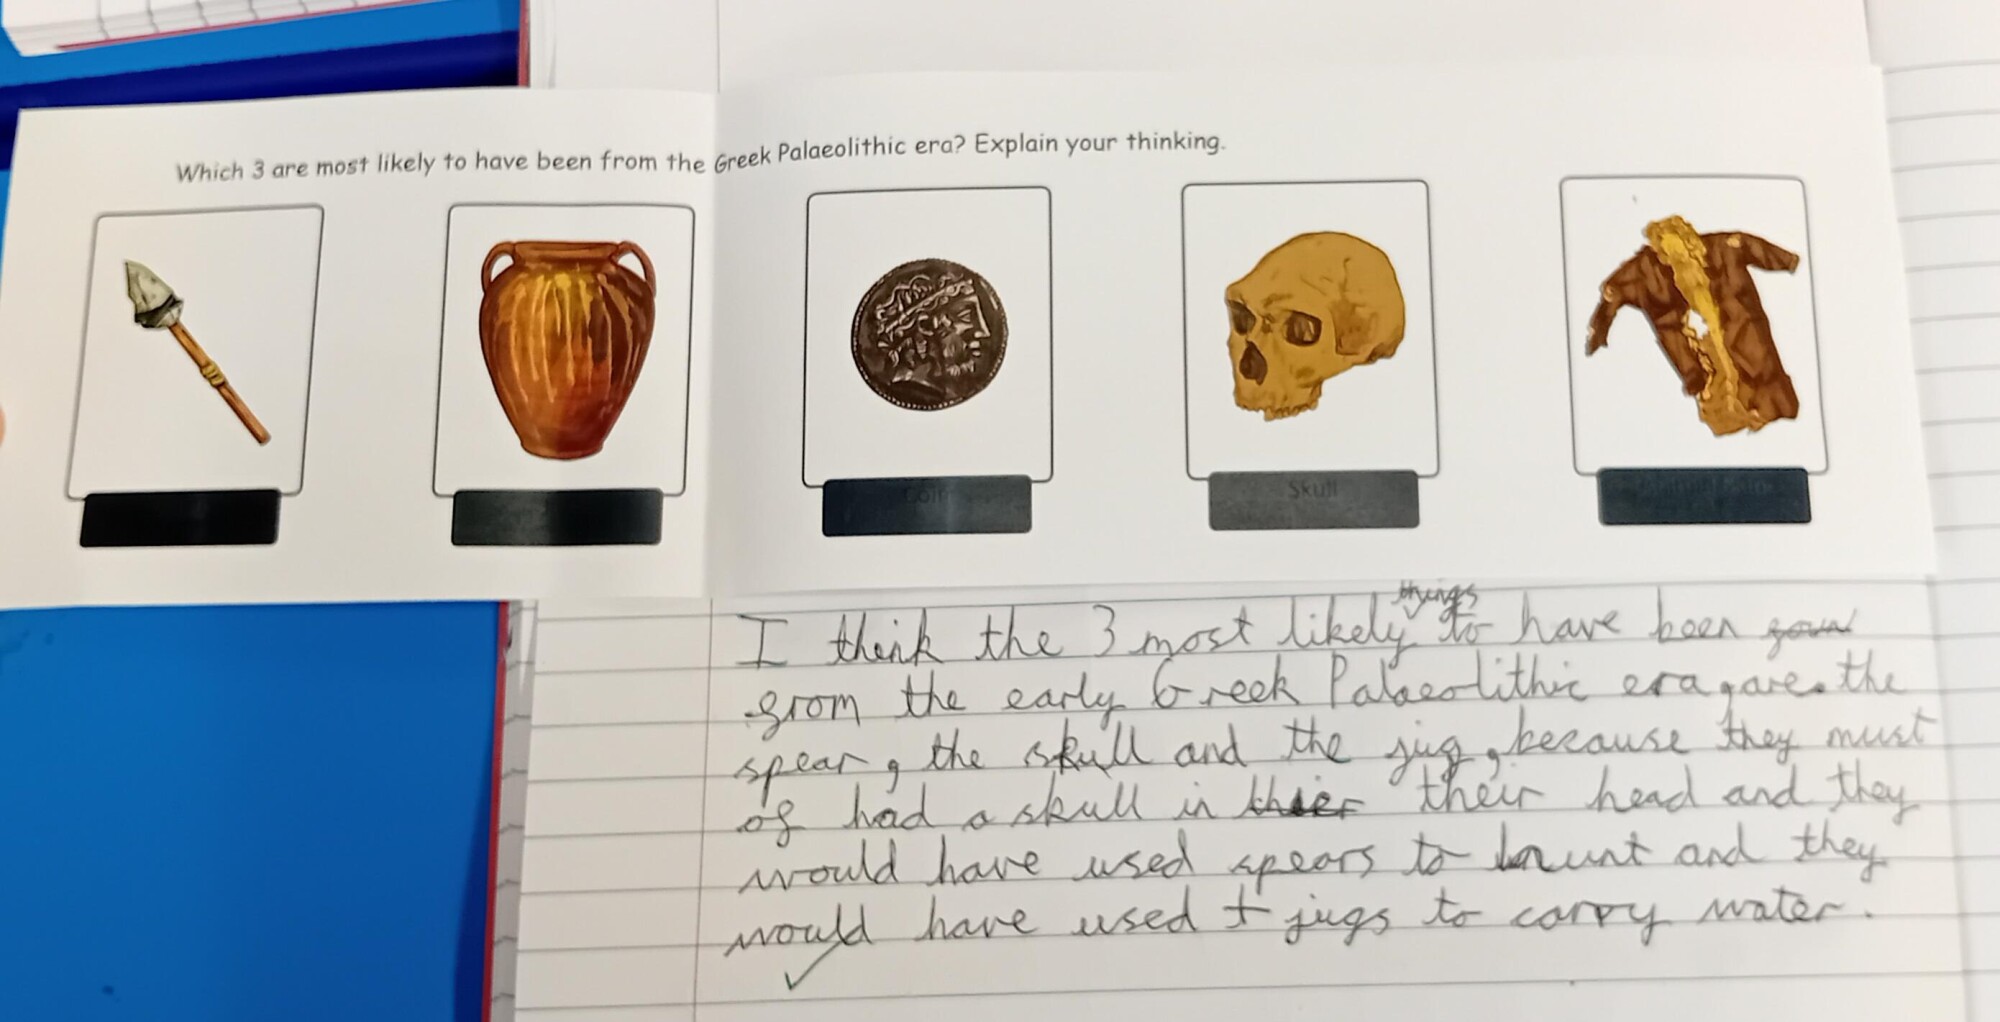 Which 3 are most likely to have been from the Greek Palaeolithic era? Explain your thinking.
Coin
Skull
things
I think the 3 most likely to have been
from the early Greek Palaeolithic era, are the
spear, the skull and the jug, because they must
of had a skull in thier their head and they
would have used spears to hunt and they
would have used t jugs to carry water.